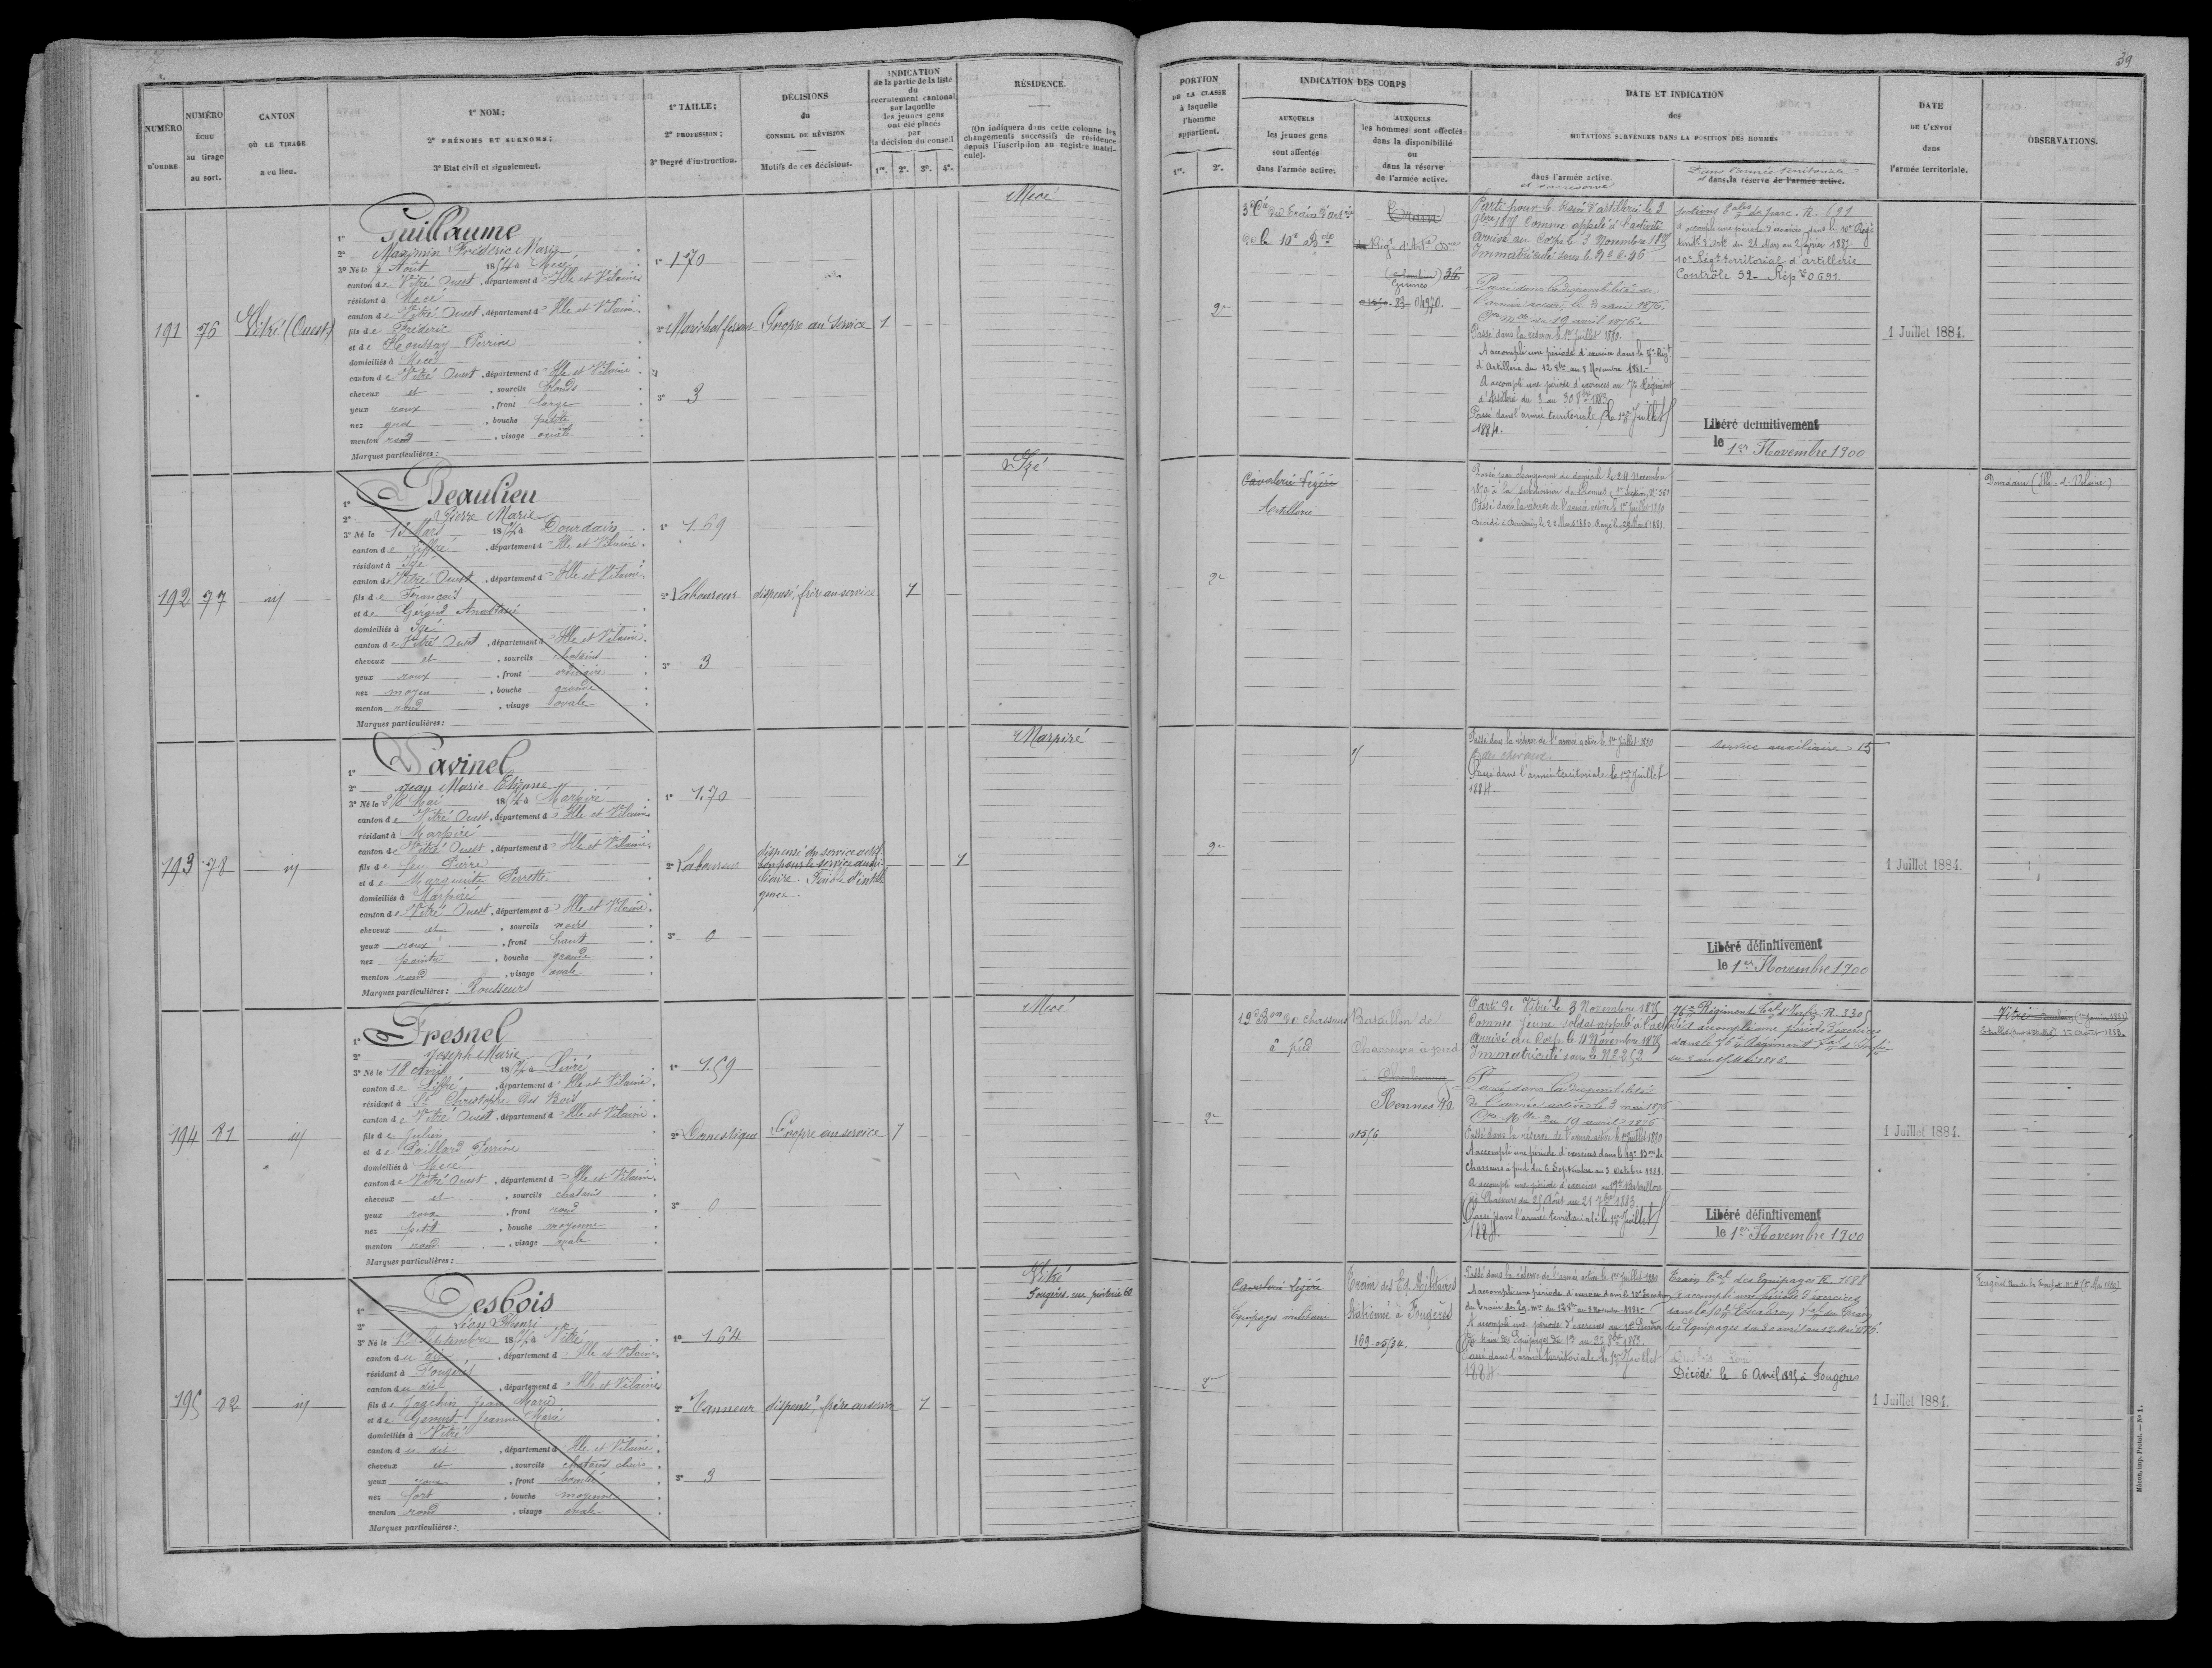 39
NUMÉRO D'ORDRE.
NUMÉRO ÉCHU au tirage au sort.
CANTON OÙ LE TIRAGE a eu lieu.
1° NOM;
2° PRÉNOMS ET SURNOMS;
3° Etat civil et signalement.
1° TAILLE;
2° PROFESSION;
3° Degré d'instruction.
DÉCISIONS
du
CONSEIL DE RÉVISION
Motifs de ces décisions.
INDICATION
de la partie de la liste
du
recrutement cantonal
sur laquelle
les jeunes gens
ont été placés
par
la décision du conseil
1re. 2e. 3e. 4e.
RÉSIDENCE.
(On indiquera dans cette colonne les
changements successifs de résidence
depuis l'inscription au registre matri-
cule).
PORTION
DE LA CLASSE
à laquelle
l'homme
appartient.
1re. 2e.
INDICATION DES CORPS
AUXQUELS
les jeunes gens
sont affectés
dans l'armée active.
AUXQUELS
les hommes sont affectés
dans la disponibilité
ou
dans la réserve
de l'armée active.
DATE ET INDICATION
des
MUTATIONS SURVENUES DANS LA POSITION DES HOMMES
dans l'armée active.
et sa réserve
Dans l'armée territoriale
et dans la réserve de l'armée active.
DATE
DE L'ENVOI
dans
l'armée territoriale.
OBSERVATIONS.
191
76
Vitré (Ouest)
1° Guillaume
2° Maximin Frédéric Marie
3° Né le 7 Août 1854 à Mecé
canton de Vitré Ouest, département d'Ille et Vilaine
résidant à Mecé
canton de Vitré Ouest, département d'Ille et Vilaine
fils de Frédéric
et de Houssay Perrine
domiciliés à Mecé
canton de Vitré Ouest, département d'Ille et Vilaine
cheveux et, sourcils blonds
yeux roux, front large
nez gros, bouche petite
menton rond, visage ovale
Marques particulières:
1° 1.70
2° Maréchal ferrant
3° 3
Propre au Service
1
Mecé
2e
3e Cie du train d'artie
de la 10e Bde
Train
Régt d'Artie
Guines
83-04970.
Parti pour le train d'artillerie le 3
9bre 1875 Comme appelé à l'activité
Arrivé au Corps le 3 Novembre 1875
Immatriculé sous le N°
Passé dans la disponibilité de
l'armée active le 3 mai 1876.
Cre Mlle du 19 avril 1876.
Passé dans la réserve le 1er Juillet 1880.
A accompli une période d'exercice dans le 7e Régt
d'Artillerie du 12 8bre au 8 Novembre 1881.
A accompli une période d'exercices au 7e Régiment
d'Artillerie du 3 au 30 8bre 1883
Passé dans l'armée territoriale le 1er Juillet
1884.
sections de parc. R. 691
A accompli une période d'exercices dans le 10e Régt
territ. d'Artie du 21 Mars au 2 Avril 1887
10e Régt territorial d'artillerie
Contrôle 52 - Rép re 0691.
Libéré définitivement
le 1er Novembre 1900
1 Juillet 1884.
192
77
id
1° Beaulieu
2° Pierre Marie
3° Né le 13 Mars 1854 à Dourdain
canton de Liffré, département d'Ille et Vilaine
résidant à Izé
canton de Vitré Ouest, département d'Ille et Vilaine
fils de François
et de Gérard Anastasie
domiciliés à Izé
canton de Vitré Ouest, département d'Ille et Vilaine
cheveux et, sourcils chatains
yeux roux, front ordinaire
nez moyen, bouche grande
menton rond, visage ovale
Marques particulières:
1° 1.69
2° Laboureur
3° 3
dispensé, frère au service
1
Izé
2e
Cavalerie légère
Artillerie
Passé par changement de domicile le 24 Novembre
1879 à la subdivision de Rennes
Passé dans la réserve de l'armée active le 1er Juillet 1880
décédé à Dourdain le 22 Mars 1880. Rayé le 29 Mars 1881.
Dourdain (Ille et Vilaine)
193
78
id
1° Pavinel
2° Jean Marie Etienne
3° Né le 28 Mai 1854 à Marpiré
canton de Vitré Ouest, département d'Ille et Vilaine
résidant à Marpiré
canton de Vitré Ouest, département d'Ille et Vilaine
fils de feu Pierre
et de Marguerite Perrette
domiciliés à Marpiré
canton de Vitré Ouest, département d'Ille et Vilaine
cheveux et, sourcils noirs
yeux roux, front haut
nez pointu, bouche grande
menton rond, visage ovale
Marques particulières: Rousseurs
1° 1.70
2° Laboureur
3° 0
dispensé du service actif
bon pour le service auxi-
liaire. Faible d'intelli-
gence.
1
Marpiré
2e
Passé dans la réserve de l'armée active le 1er Juillet 1880
Passé dans l'armée territoriale le 1er Juillet
1884.
Service auxiliaire 15
Libéré définitivement
le 1er Novembre 1900
1 Juillet 1884.
194
81
id
1° Fresnel
2° Joseph Marie
3° Né le 18 Avril 1854 à Livré
canton de Liffré, département d'Ille et Vilaine
résidant à St Christophe des Bois
canton de Vitré Ouest, département d'Ille et Vilaine
fils de Julien
et de Paillard Perrine
domiciliés à Mecé
canton de Vitré Ouest, département d'Ille et Vilaine
cheveux et, sourcils chatains
yeux roux, front rond
nez petit, bouche moyenne
menton rond, visage ovale
Marques particulières:
1° 1.59
2° Domestique
3° 0
Propre au service
1
Mecé
2e
19e Bon de Chasseurs
à pied
Bataillon de
Chasseurs à pied
à Cherbourg
Rennes 40
Parti de Vitré le 3 Novembre 1875
Comme jeune soldat appelé à l'activité
Arrivé au Corps le 4 Novembre 1875
Immatriculé sous le N° 2252
Passé dans la disponibilité
de l'armée active le 3 mai 1876
Cre Mlle du 19 avril 1876
Passé dans la réserve de l'armée active le 1er Juillet 1880
A accompli une période d'exercices dans le 19e Bon de
Chasseurs à pied du 6 Septembre au 3 Octobre 1881.
A accompli une période d'exercices au 19e Bataillon
de Chasseurs du 25 Août au 21 7bre 1883
Passé dans l'armée territoriale le 1er Juillet
1884.
76e Régiment Tal d'Infie R. 3305
A accompli une période d'exercices
dans le 76e Régiment Tal d'Infie
du 3 au 15 Mai 1886.
Libéré définitivement
le 1er Novembre 1900
1 Juillet 1884.
Vitré
195
82
id
1° Desbois
2° Léon Henri
3° Né le 12 Septembre 1854 à Vitré
canton du dit, département d'Ille et Vilaine
résidant à Fougères
canton du dit, département d'Ille et Vilaine
fils de Joachim Jean Marie
et de Jeanne Marie
domiciliés à Vitré
canton du dit, département d'Ille et Vilaine
cheveux et, sourcils chatains clairs
yeux roux, front bombé
nez fort, bouche moyenne
menton rond, visage ovale
Marques particulières:
1° 1.64
2° Tanneur
3° 3
dispensé, frère au service
1
Vitré
Fougères, rue pinterie 60
2e
Cavalerie légère
Equipages militaires
Train des Eq. Militaires
Stationné à Fougères
Passé dans la réserve de l'armée active le 1er Juillet 1880
A accompli une période d'exercice dans le 10e Escadron
du Train des Eq. mres du 12 8bre au 8 Novembre 1881.
A accompli une période d'exercices au 10e Escadron
du train des Equipages
Passé dans l'armée territoriale le 1er Juillet
1884.
Train Tal des Equipages R. 1688
A accompli une période d'exercices
dans le 10e Escadron Tal du Train
des Equipages du 30 avril au 12 Mai 1886.
Décédé le 6 Avril 1895 à Fougères
1 Juillet 1884.
Mâcon, imp. Protat. — N° 1.